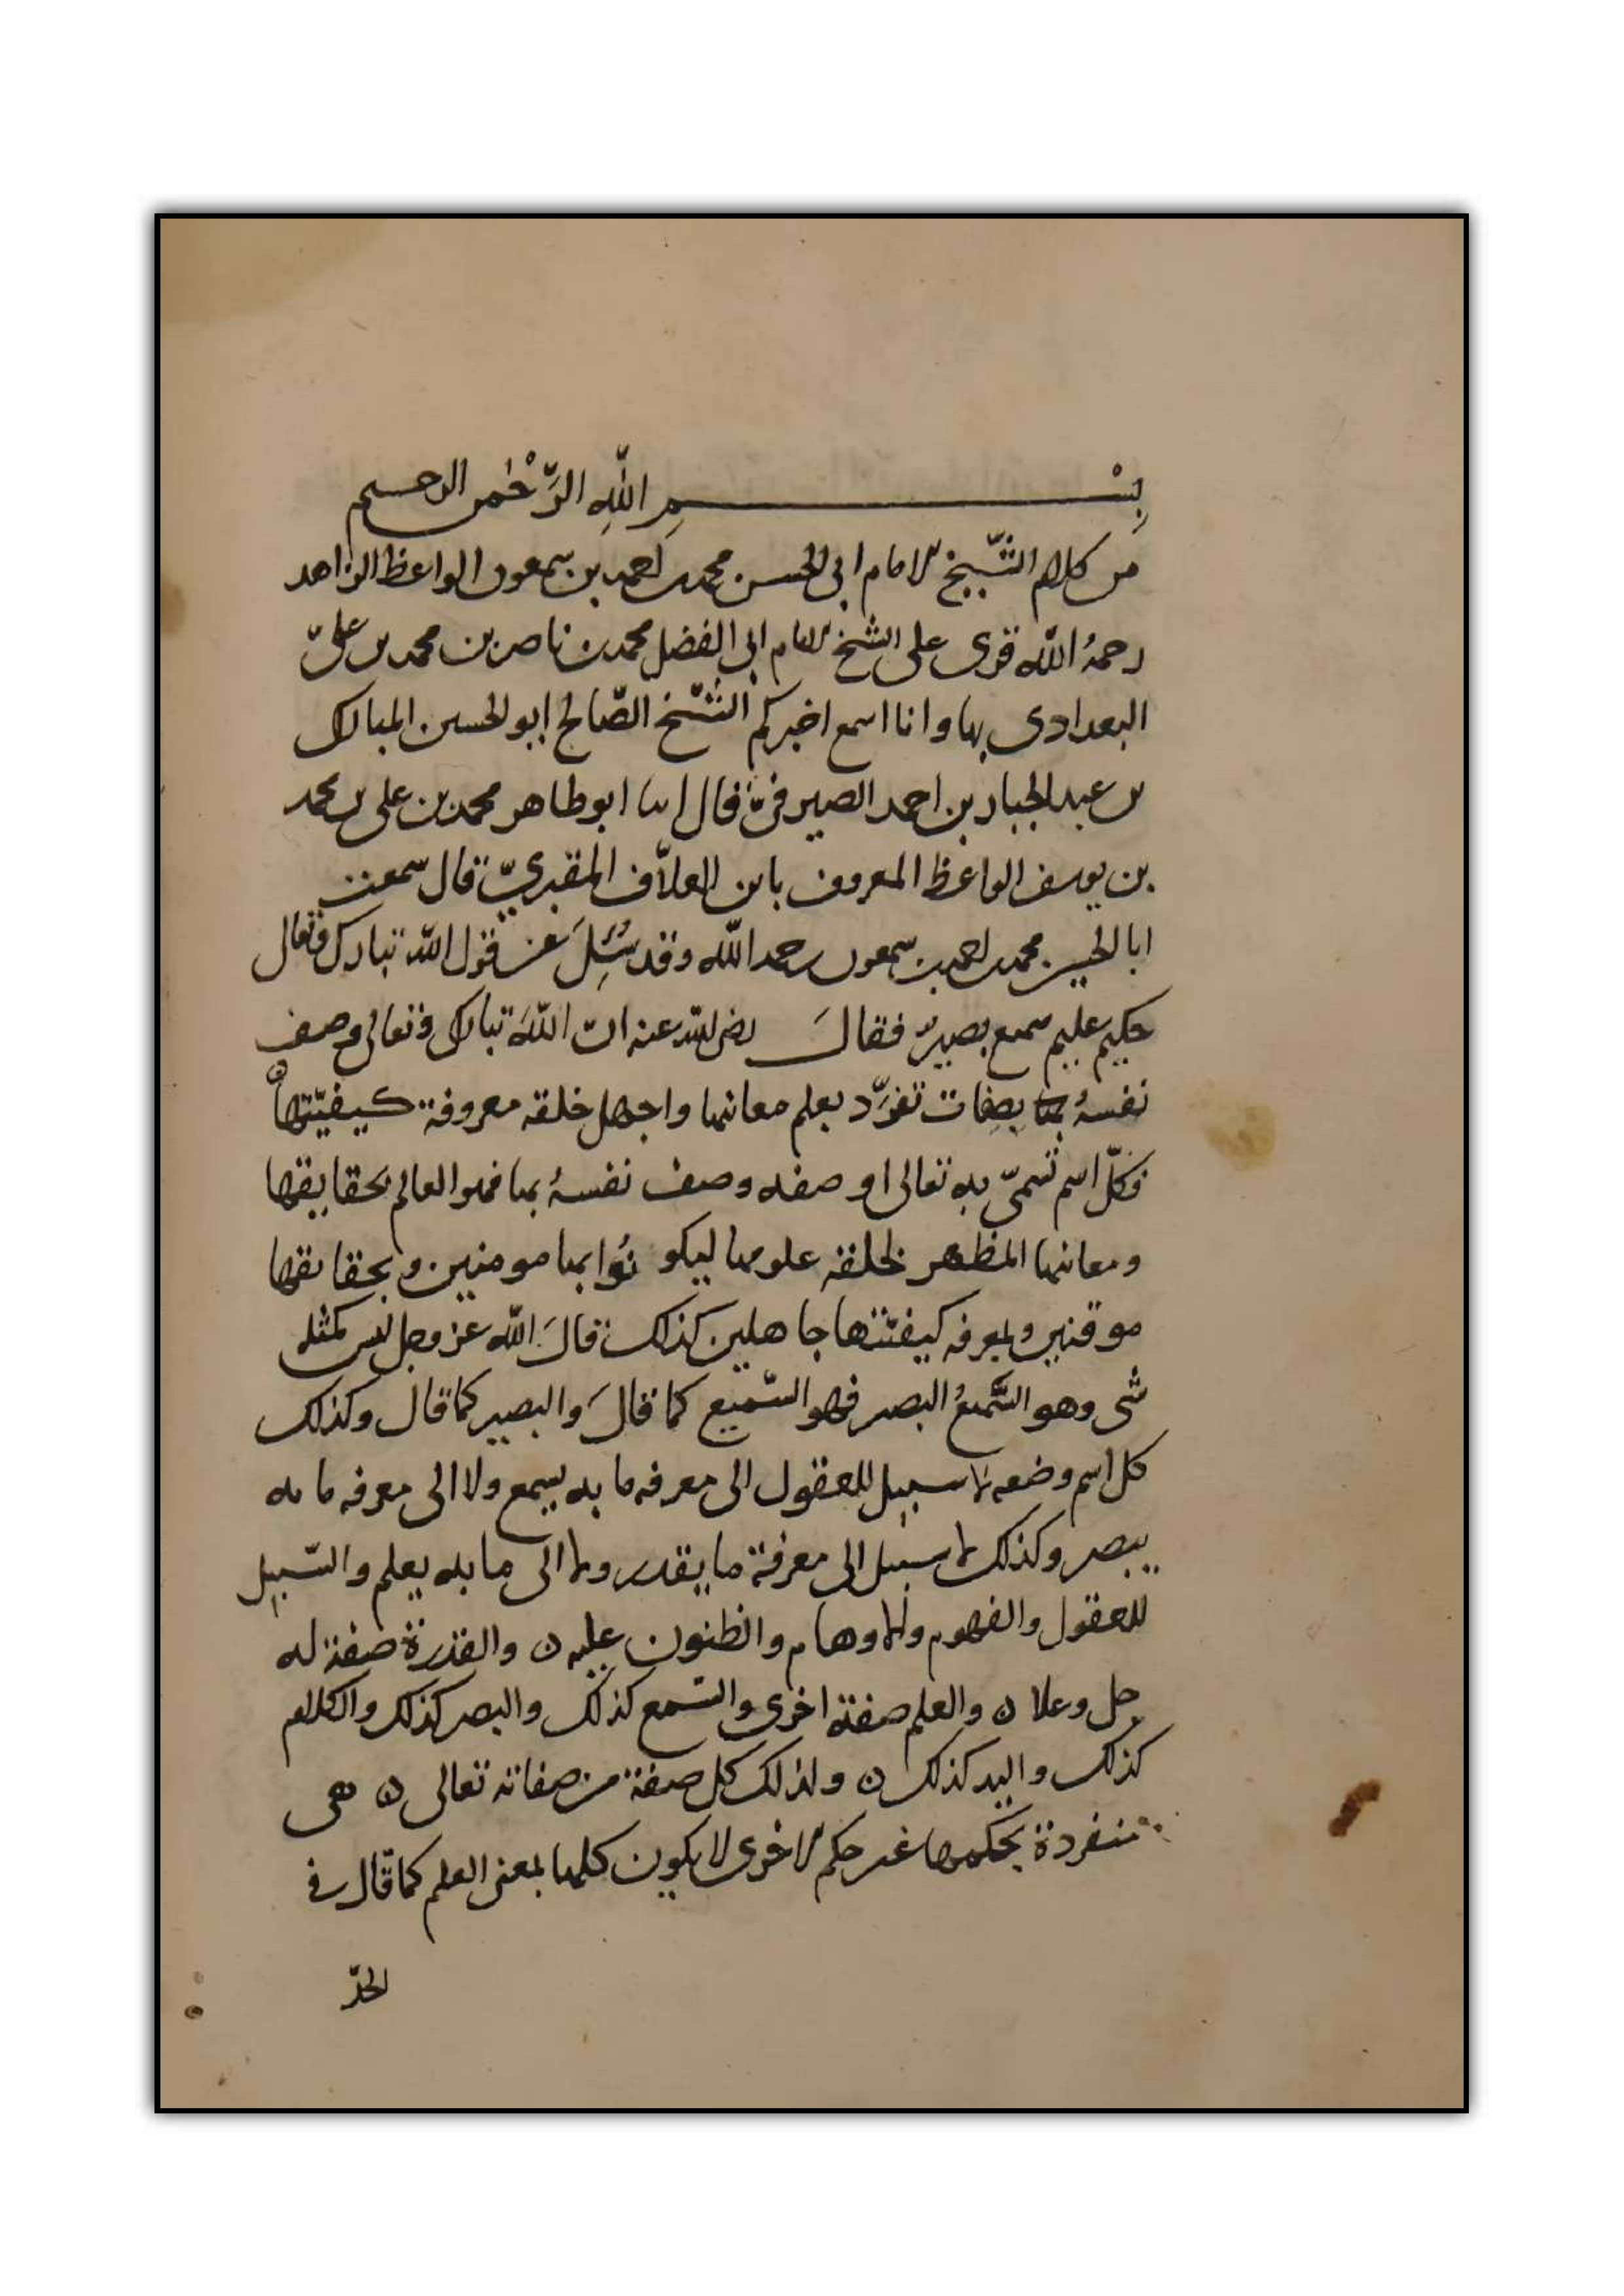 بِسْــــــمِ اللّٰهِ الرَّحْمٰن الرحيم
من كلام الشّيخ الامام ابى الحسن محمد بن احمد بن سمعون الواعظ الزاهد
رحمهُ اللّٰه قرى على الشخ الامام ابى الفضل محمد بن ناصر بن محمد بن علىّ
البعدادى بها وانا اسمع اخبركم الشّيخ الصّالح ابو الحسين المبارك
بن عبد الجبار بن احمد الصيرفىّ قال انبا ابو طاهر محمد بن على بن محمد
بن يوسف الواعظ المعروف بابن العلاّف المقبريّ قال سمعت
ابا الحسن محمد بن احمد بن سمعون رحمه اللّٰه وقد سُئِلَ عن قول اللّٰه تبارك وتعالى
حكيم عليم سميع بصيرٌ فقالَ رضى الله عنه انّ اللّٰهَ تبارك وتعالى وصف
نفسهُ بصِفات تفرَّد بعلم معانيها واجهل خلقه معروفة كيفيّتها
فكلّ اسم تسمّىّ به تعالى او صفه وصف نفسهُ بها فهو العالم بحقايقها
ومعانيها المظهر لخلقه علومها ليكو نُوا بها مومنين وبحقايقها
موقنين وبمعرفه كيفيّتها جاهلين كذلك قالَ اللّٰه عز وجل ليس كمثله
شى وهو السَّميعُ البصير فهو السّميع كما قالَ والبصير كما قال وكذلك
كل اسم وضعه لا سبيل للعقول الى معرفه ما به يسمع ولا الى معرفه ما به
يبصر وكذلك لا سبيل الى معرفة ما يقدر ولا الى ما به يعلم والسّبيل
للعقول والفهوم والاوهام والظنون عليه ن والقدرة صفة له
جل وعلا ن والعلم صفة اخرى والسّمع كذلك والبصر كذلك والكلام
كذلك واليد كذلك ن ولذلك كل صفة من صفاته تعالى ن هى
منفردة بحكمها غير حكم الاخرى لا يكون كلها بمعنى العلم كما قال فى